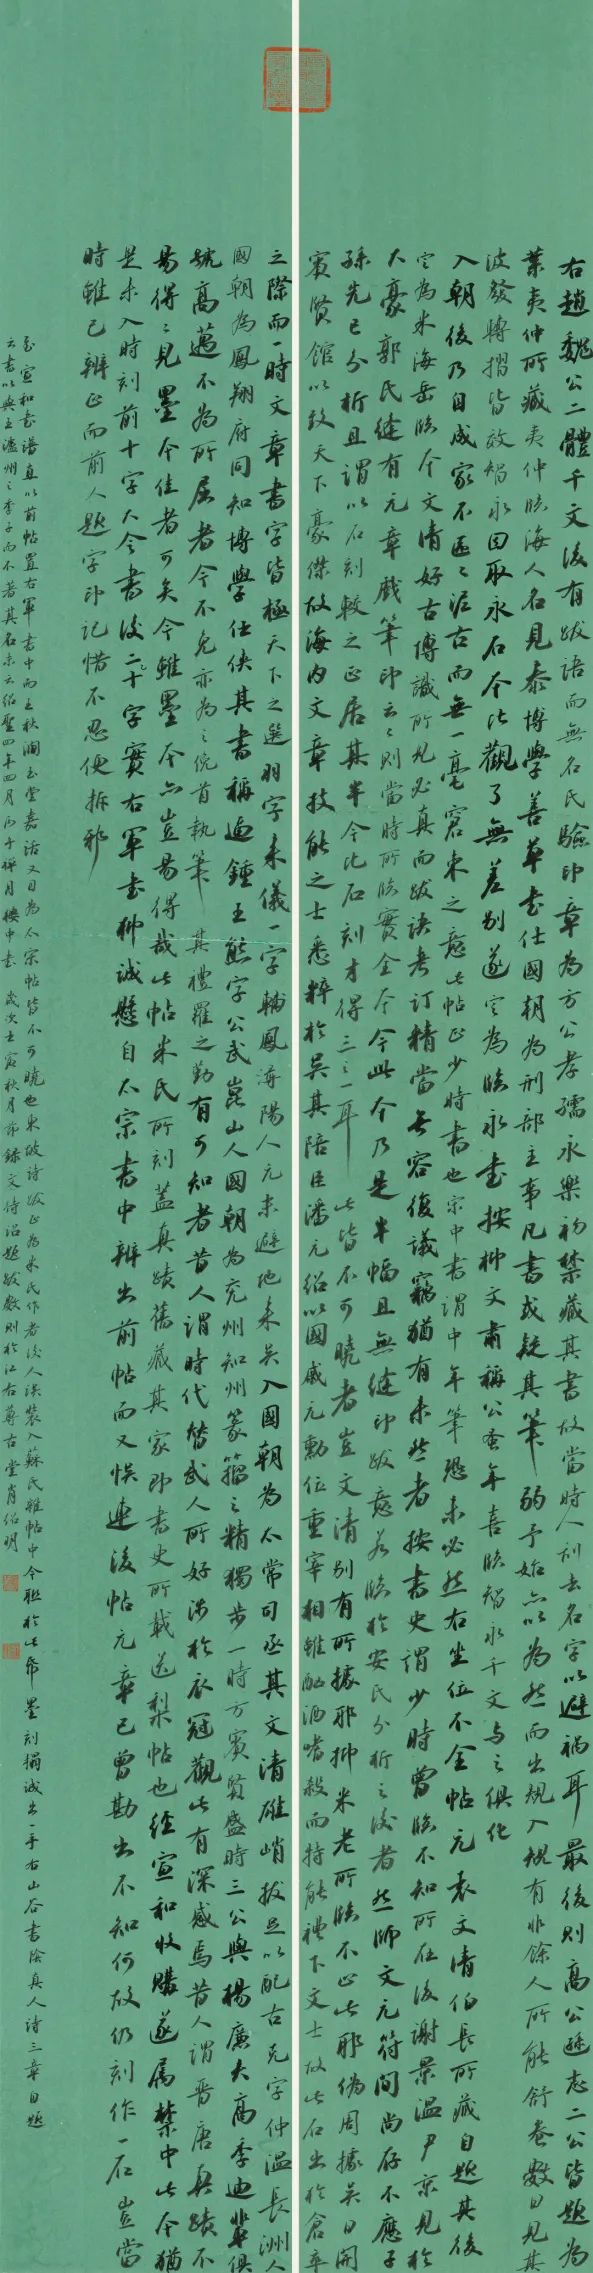 右趙魏公二體千文後有跋語而無名氏驗印章為方公孝孺永樂初禁藏其書故當時人刮去名字以避禍耳最後則高公遜志二公皆題為
葉夷仲所藏夷仲臨海人名見泰博學善草書仕國朝為刑部主事凡書或疑其筆弱予始亦以為然而出規入矩有非餘人所能舒卷數日見其
波發轉摺皆放智永因取永石本比觀了無差別遂定為臨永書按柳文肅稱公蚤年喜臨智永千文與之俱化
入朝後乃自成家不區區泥古而無一毫窘束之意此帖正少時書也宋中書謂中年筆恐未必然右坐位不全帖元袁文清伯長所藏自題其後
定為米海岳臨本文清好古博識所見必真而跋語考訂精當無容復議竊猶有未然者按書史謂少時曾臨不知所在後謝景溫尹京見於
大豪郭氏縫有元章戲筆印云云則當時所臨實全本今此本乃是半幅且無縫印跋意為臨於安氏分析之後者然師文元符間尚存不應子
孫先已分析且謂以石刻較之正居其半今此石刻才得三之一耳此皆不可曉者豈文清別有所據邪抑米老所臨不止此邪偽周據吳日開
賓賢館以致天下豪傑故海內文章技能之士悉粹於吳其陪臣潘元紹以國戚元勳位重宰相雖酗酒嗜殺而特能禮下文士故此石出於倉卒
之際而一時文章書字皆極天下之選羽字來儀一字輔鳳潯陽人元末避地來吳入國朝為太常司丞其文清雄峭拔足以配古克字仲溫長洲人
國朝為鳳翔府同知博學仕俠其書稱逼鍾王熊字公武崑山人國朝為兖州知州篆籀之精獨步一時方賓賢盛時三公與楊廉夫高季迪輩俱
號高蹈不為所屈者今不免亦為之俛首執筆其禮羅之勤有可知者昔人謂時代替武人所好涉於衣冠觀此有深感焉昔人謂晉唐真蹟不
易得得見墨本佳者可矣今雖墨本亦豈易得哉此帖米氏所刻蓋真蹟舊藏其家即書史所載送梨帖也經宣和收購遂屬禁中此本猶
是未入時刻前十字大令書後二十字實右軍書柳誠懸自太宗書中辨出前帖而又悮連後帖元章已曾勘出不知何故仍刻作一石豈當
時雖已辨正而前人題字印記惜不忍便拆邪
至宣和書譜直以前帖置右軍書中而王秋澗玉堂嘉話又目為太宗帖皆不可曉也東坡詩跋正為米氏作者後人誤裝入蘇氏雜帖中今聯於此希墨刻搨誠出一手右山谷書陰真人詩三章自題
云書以與王瀘州之季子而不著其名末云紹聖四年四月丙午禪月樓中書 歲次壬寅秋月節錄文待詔題跋數則於江右尊古堂肖紹明